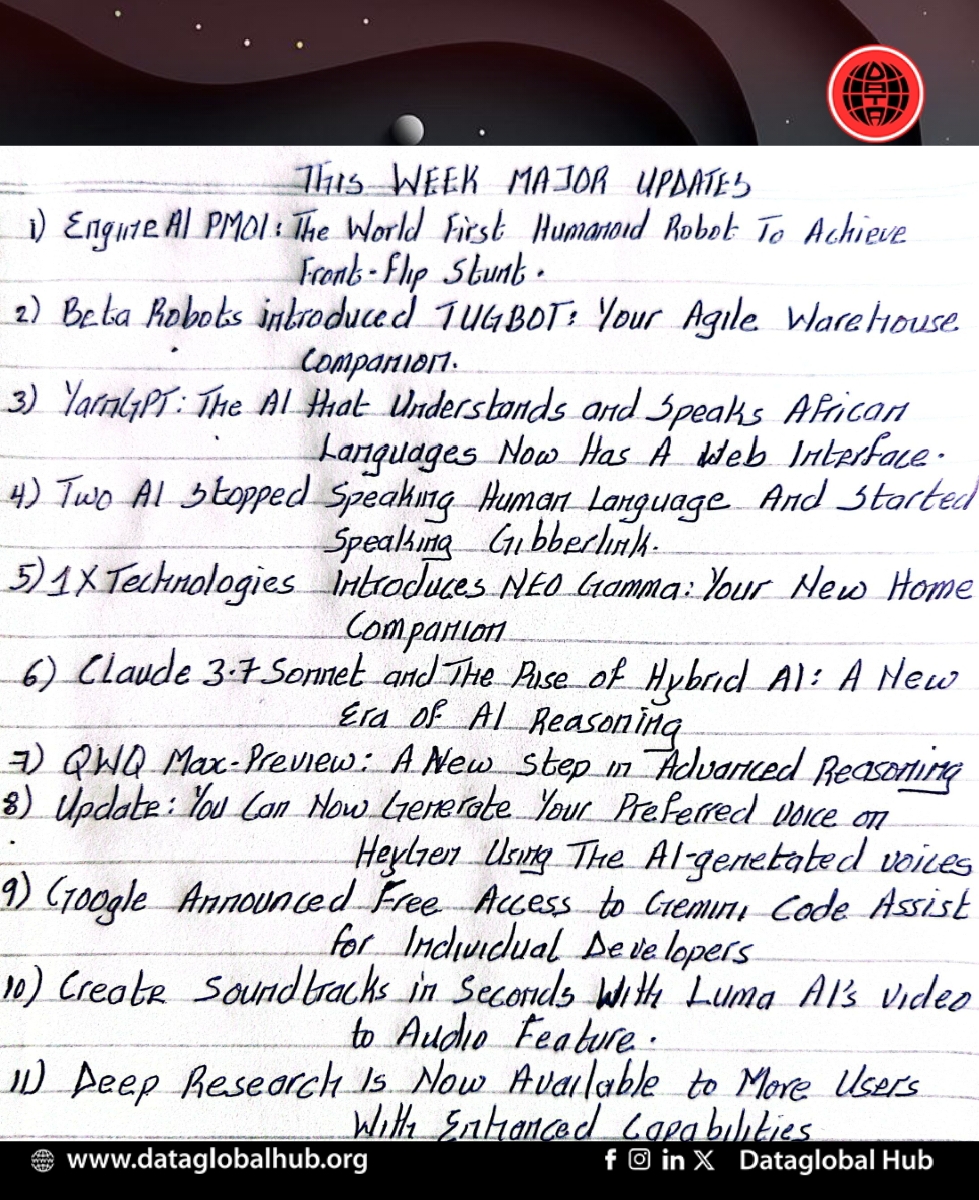 DATA
THIS WEEK MAJOR UPDATES
1) EngineAI PM01: The World First Humanoid Robot To Achieve
Front-Flip Stunt.
2) Beta Robots introduced TUGBOT: Your Agile Warehouse
Companion.
3) YarnGPT: The AI that Understands and Speaks African
Languages Now Has A Web Interface.
4) Two AI Stopped Speaking Human Language And Started
Speaking Gibberlink.
5) 1X Technologies Introduces NEO Gamma: Your New Home
Companion
6) Claude 3.7 Sonnet and The Rise of Hybrid AI: A New
Era of AI Reasoning
7) QWQ Max-Preview: A New Step in Advanced Reasoning
8) Update: You Can Now Generate Your Preferred voice on
HeyGen Using The AI-genetated voices
9) Google Announced Free Access to Gemini Code Assist
for Individual Developers
10) Create Soundtracks in Seconds With Luma AI's video
to Audio Feature.
11) Deep Research Is Now Available to More Users
With Enhanced Capabilities
www.dataglobalhub.org f in X Dataglobal Hub